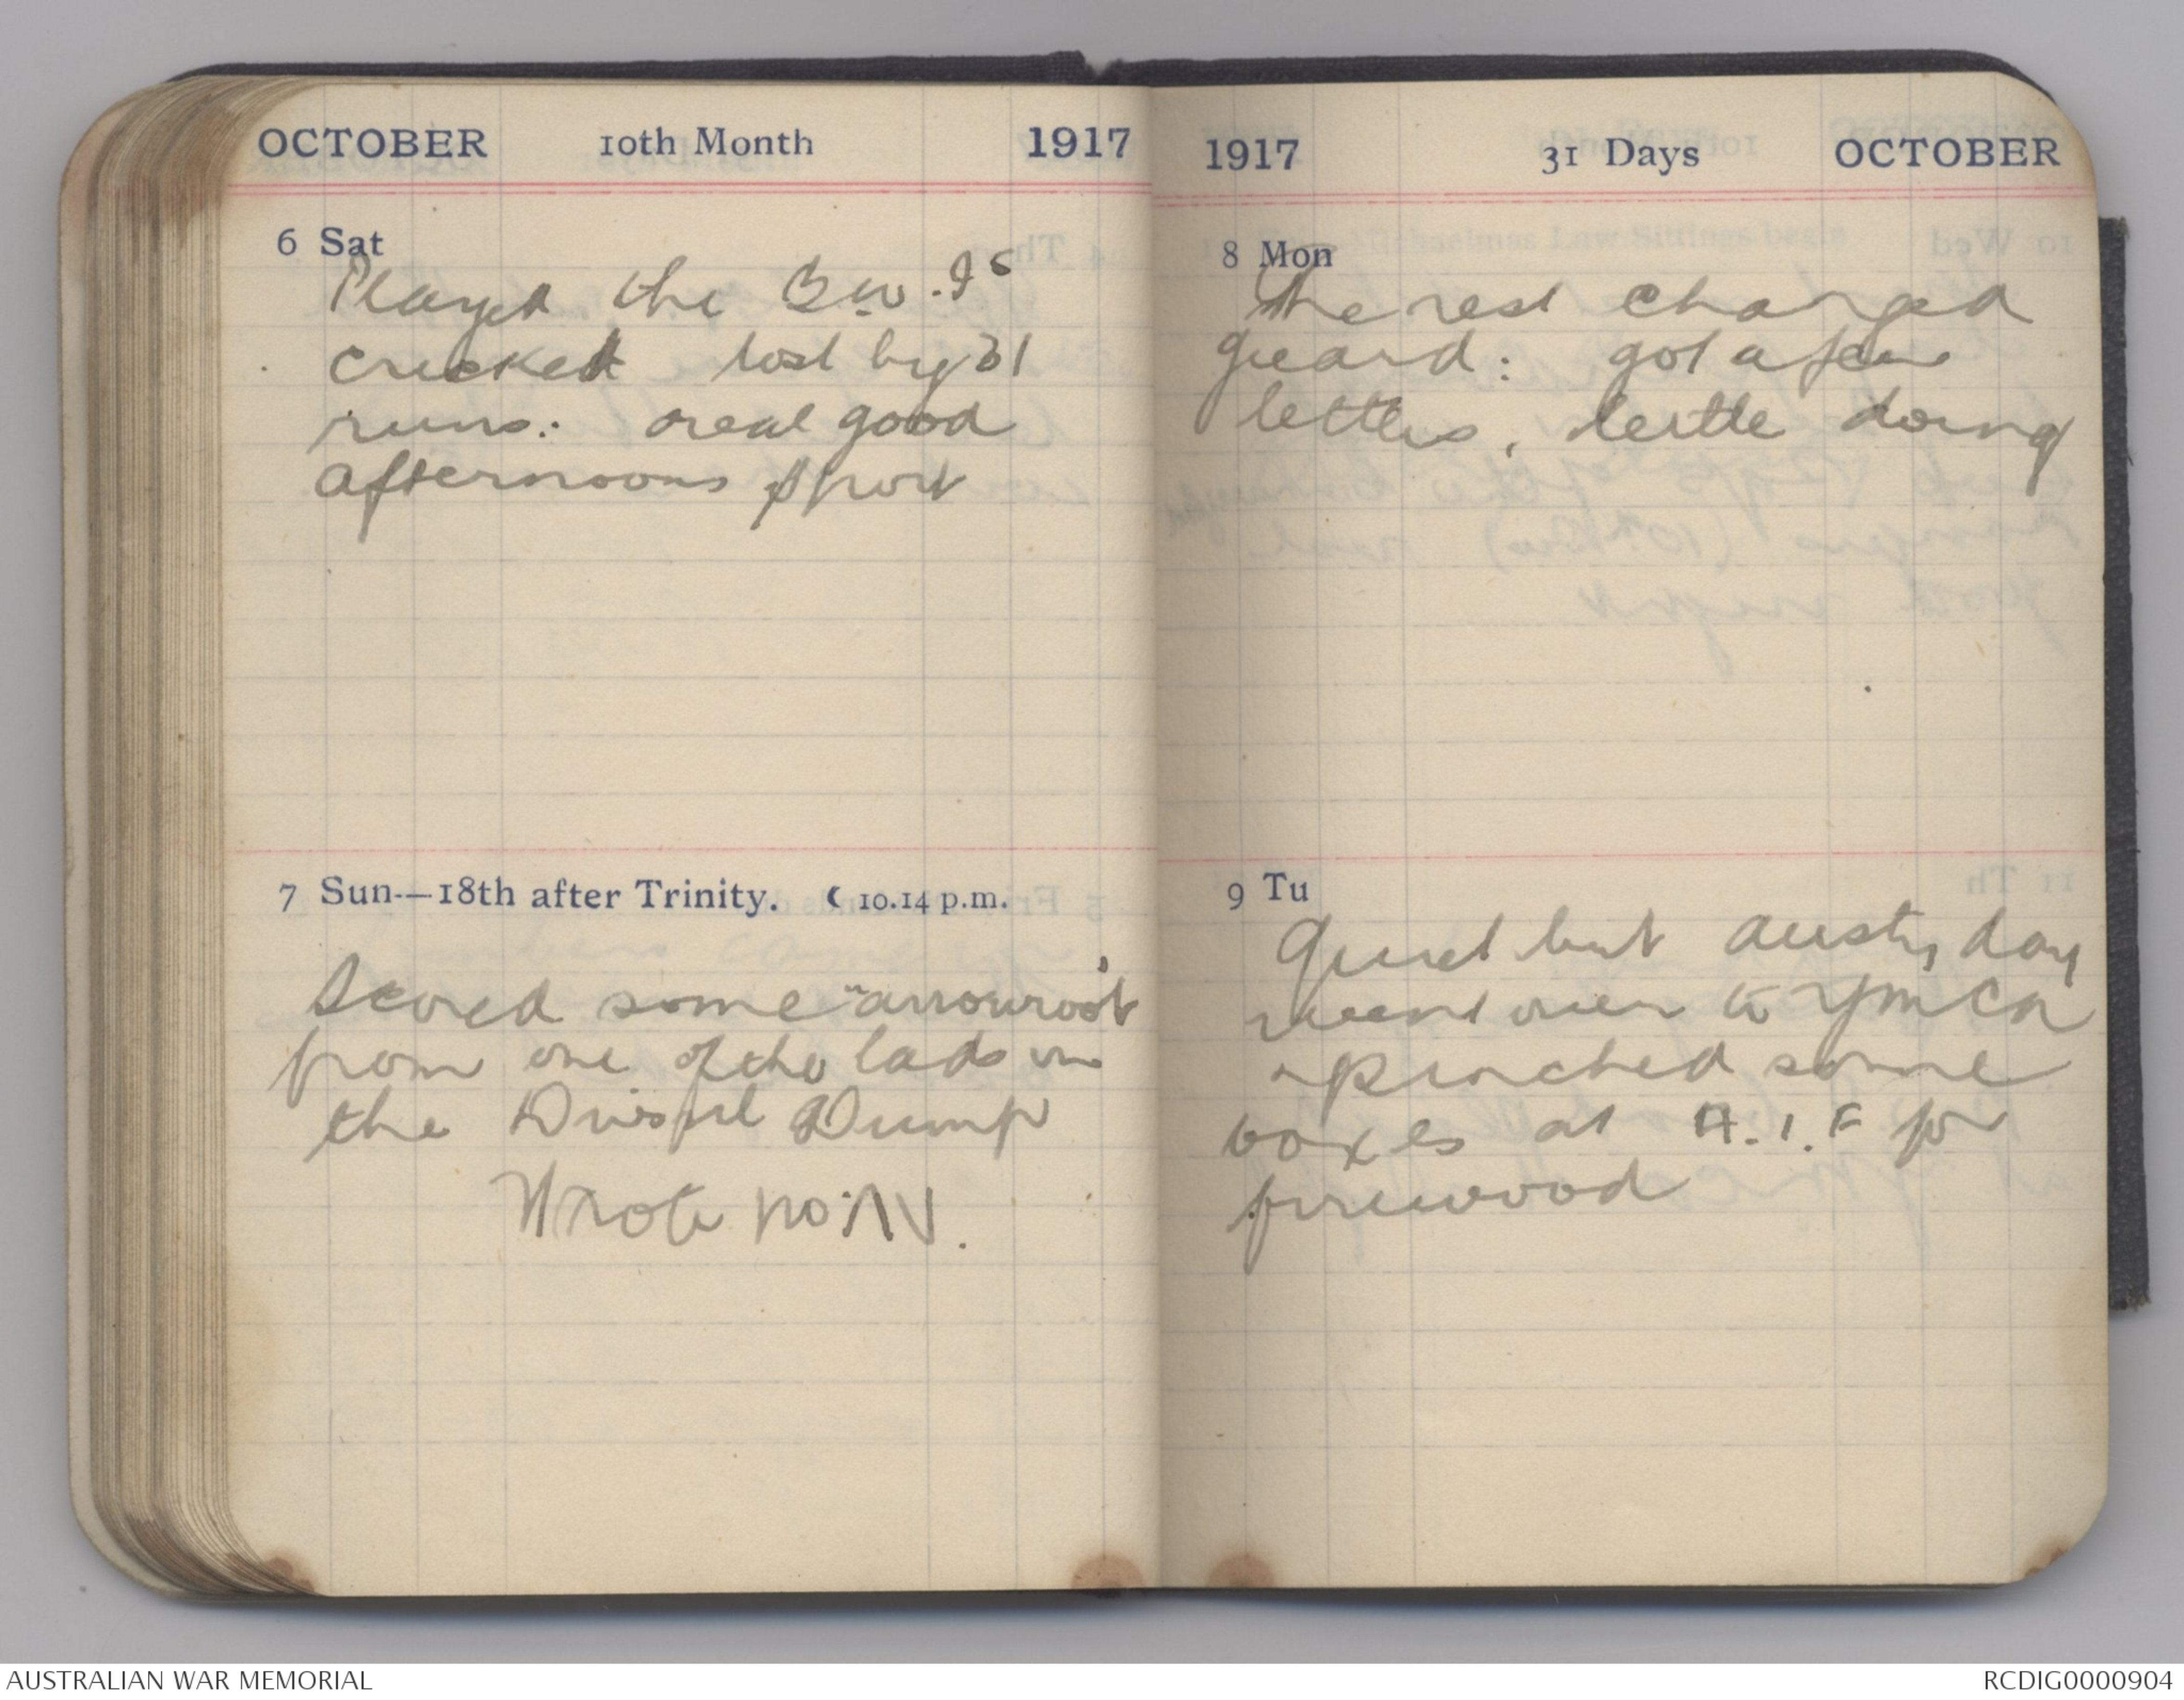 OCTOBER 10th Month 1917
6 Sat
Played the B.W.Is
cricket lost by 31
runs: a real good
afternoons sport
7 Sun—18th after Trinity. ☾ 10.14 p.m.
Scored some "arrowroot
from one of the lads in
the Dump
Wrote No:
1917 31 Days OCTOBER
8 Mon
The rest changed
guard: got a few
letters, little doing
9 Tu
Quiet but dusty day
went over to YMCA
pinched some
boxes at A.I.F for
firewood
AUSTRALIAN WAR MEMORIAL
RCDIG0000904